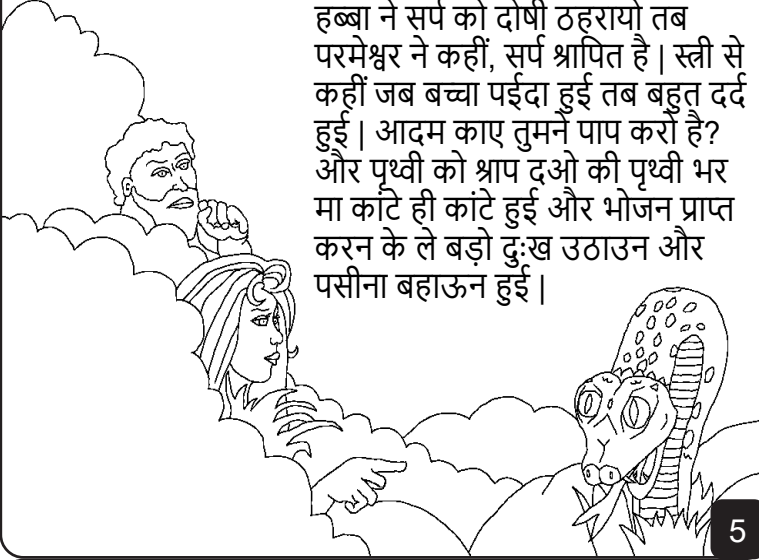 हब्बा ने सर्प को दोषी ठहरायो तब
परमेश्वर ने कहीं, सर्प श्रापित है | स्त्री से
कहीं जब बच्चा पईदा हुई तब बहुत दर्द
हुई | आदम काए तुमने पाप करो है?
और पृथ्वी को श्राप दओ की पृथ्वी भर
मा कांटे ही कांटे हुई और भोजन प्राप्त
करन के ले बड़ो दुःख उठाउन और
पसीना बहाऊन हुई |
5